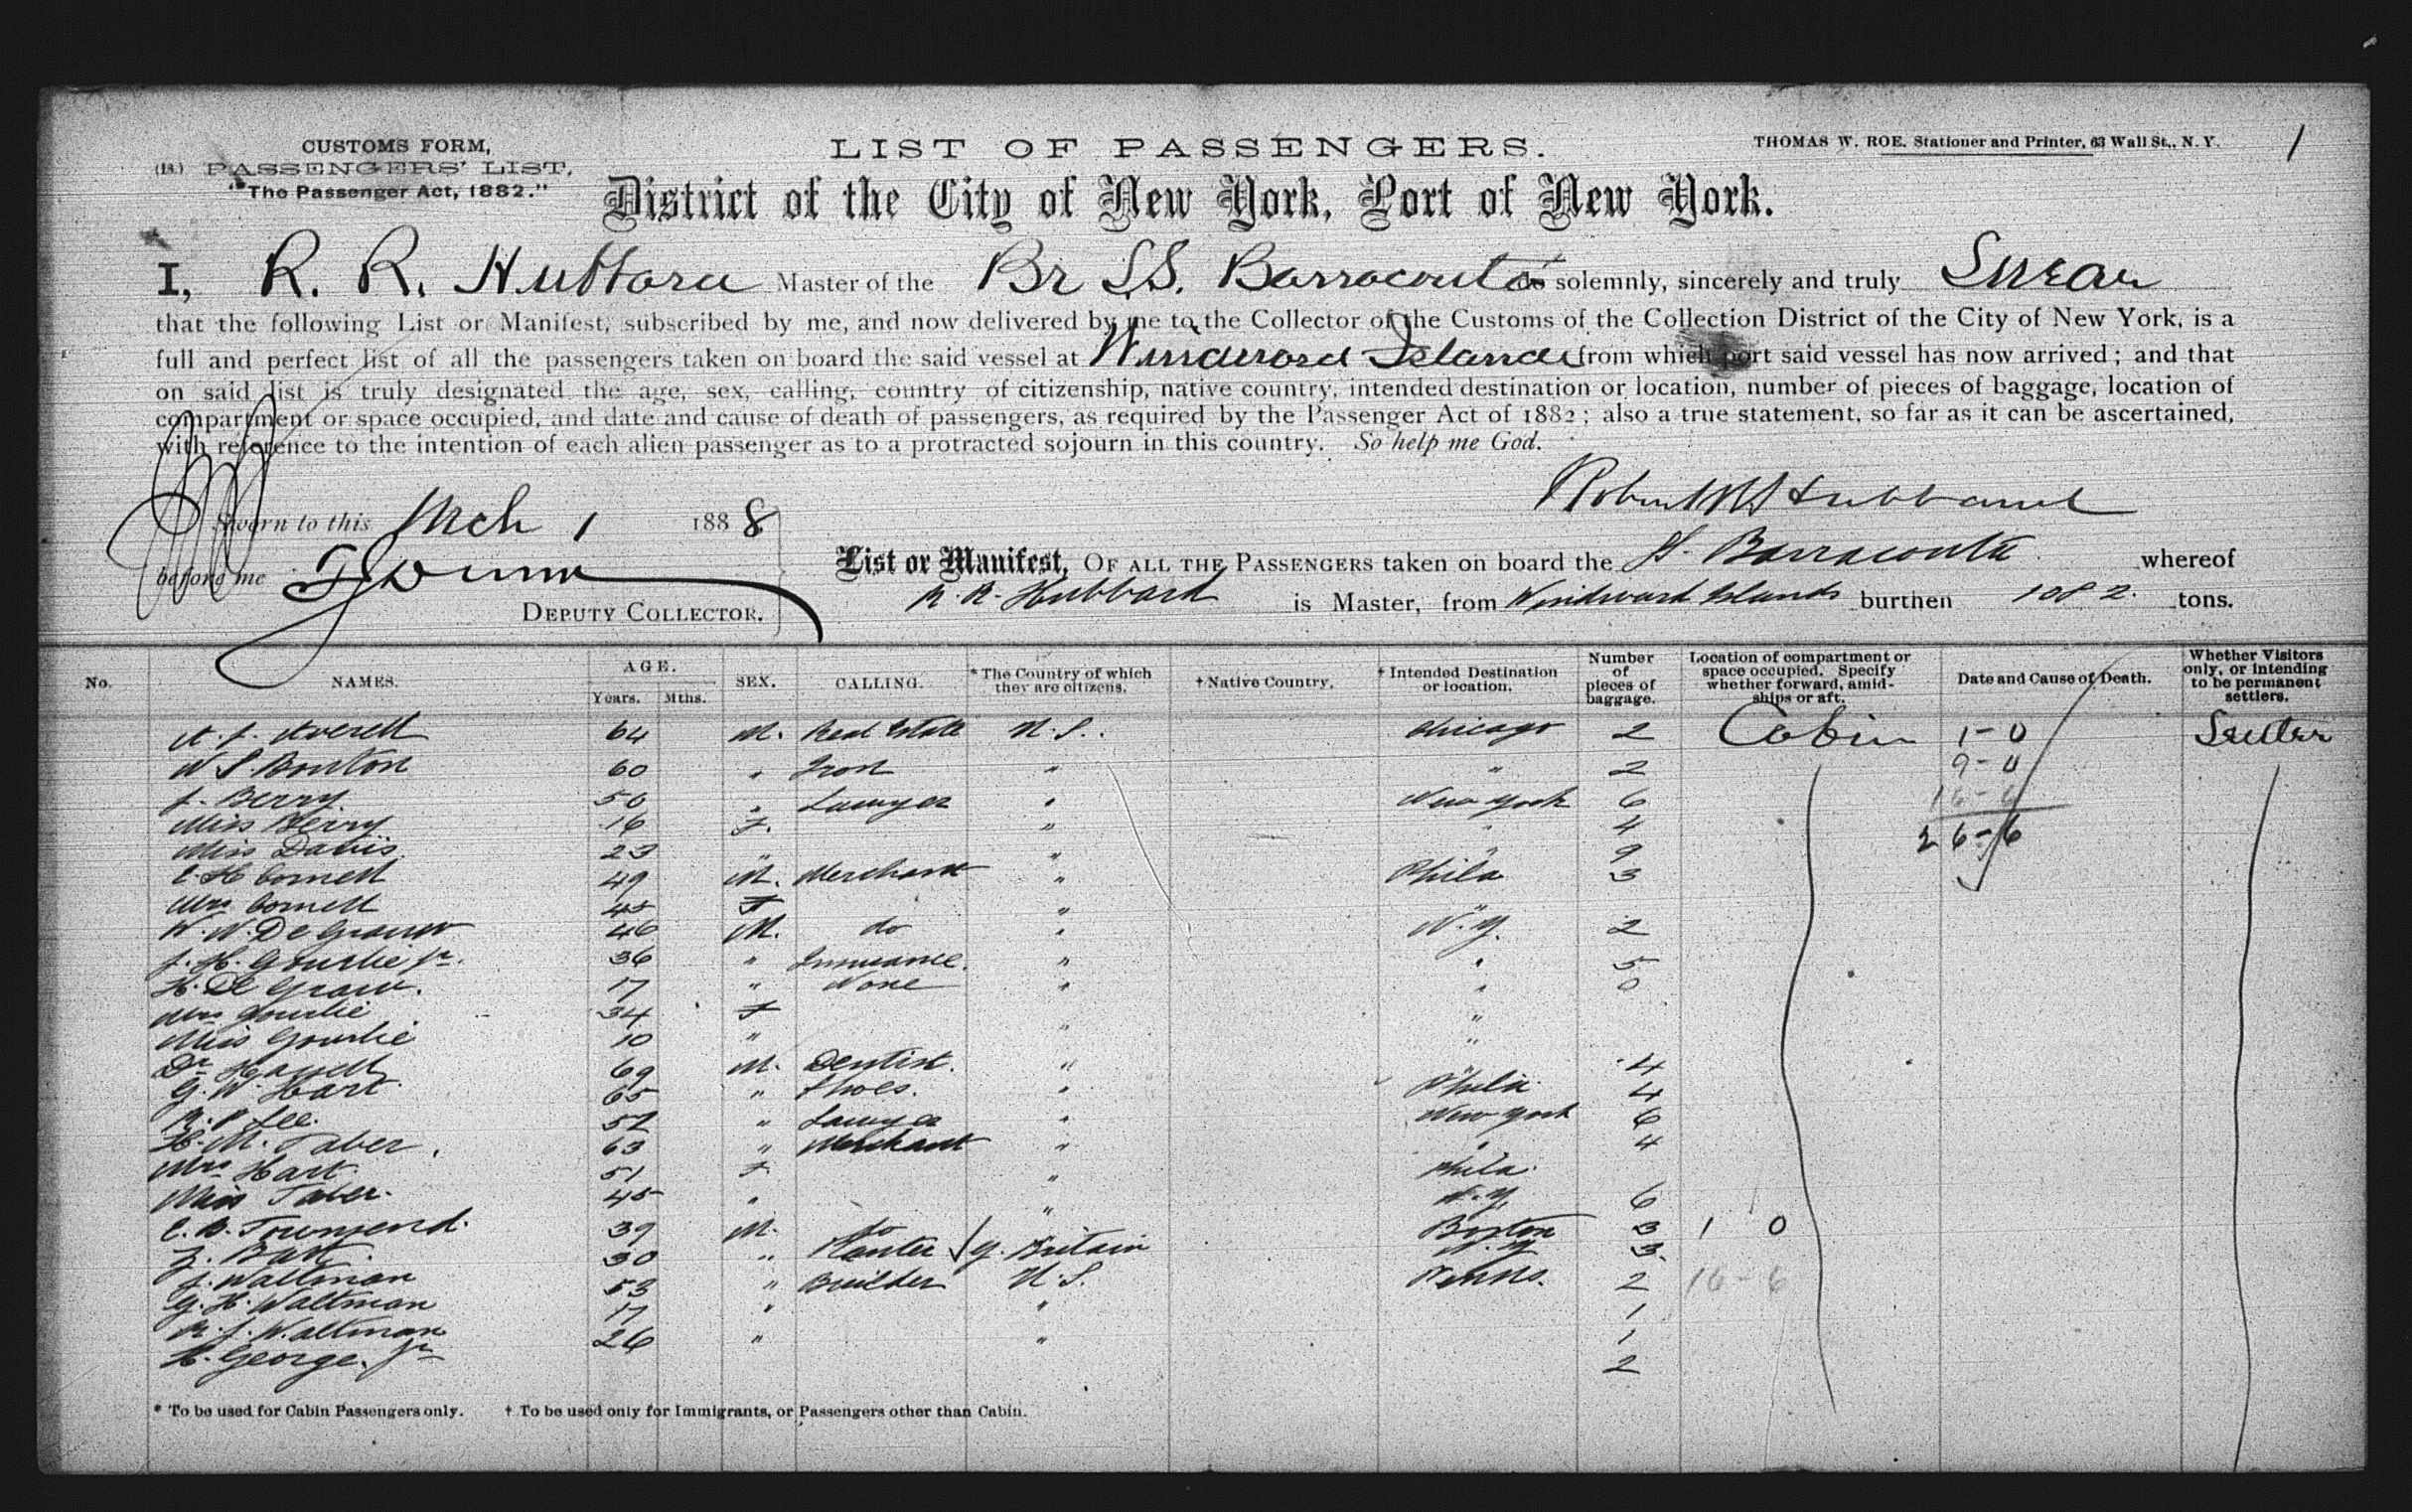 CUSTOMS FORM,
(18.) PASSENGERS' LIST,
"The Passenger Act, 1882."
LIST OF PASSENGERS.
THOMAS W. ROE, Stationer and Printer, 63 Wall St., N. Y.
1
District of the City of New York, Port of New York.
I, R. R. Hubbard Master of the Br S.S. Barracouta do solemnly, sincerely and truly Swear
that the following List or Manifest, subscribed by me, and now delivered by me to the Collector of the Customs of the Collection District of the City of New York, is a
full and perfect list of all the passengers taken on board the said vessel at Windward Islands from which port said vessel has now arrived; and that
on said list is truly designated the age, sex, calling, country of citizenship, native country, intended destination or location, number of pieces of baggage, location of
compartment or space occupied, and date and cause of death of passengers, as required by the Passenger Act of 1882; also a true statement, so far as it can be ascertained,
with reference to the intention of each alien passenger as to a protracted sojourn in this country. So help me God.
Robert R Hubbard
Sworn to this Mch 1 1888
before me
DEPUTY COLLECTOR.
List or Manifest, OF ALL THE PASSENGERS taken on board the Barracouta whereof
R. R. Hubbard is Master, from Windward Islands burthen 1082 tons.
No. NAMES. AGE. Years. Mths. SEX. CALLING. * The Country of which they are citizens. † Native Country. † Intended Destination or location. Number of pieces of baggage. Location of compartment or space occupied. Specify whether forward, amidships or aft. Date and Cause of Death. Whether Visitors only, or intending to be permanent settlers.
A. J. Averell 64 M. Real Estate U.S. Chicago 2 Cabin 1-0
W S. Bonton 60 " Iron " " 2 9-0
J. Berry 50 " Lawyer " New York 6 16-6
Miss Berry 16 F. " " 4 26-6
Miss Davis 23 " " " 9
C. H Cornell 49 M. Merchant " Phila 3
Mrs Cornell 45 F " "
W. W. De Grauw 46 M. do " N.Y. 2
J. H. Gourlie Jr. 36 " Insurance. " " 5
H. De Grauw. 17 " None " " 0
Mrs Gourlie 34 F "
Miss Gourlie 10 " " "
Dr 69 M. Dentist. " " 4
G. W. Hart 65 " Shoes. " Phila. 4
R. P. Lee. 52 " Lawyer " New York 6
H. M. Taber. 63 " Merchant " " 4
Mrs Hart 51 F. " Phila.
Miss Taber. 45 " " N.Y. 6
C. B. Townsend. 39 M. do Boston 3 1 0
30 " Planter G. Britain N.Y 3.
J. Waltman 53 " Builder U.S. Penna. 2 16-6
G. H. Waltman 17 " " 1
R. J. Waltman 26 " " 1
H. George. Jr 2
* To be used for Cabin Passengers only. † To be used only for Immigrants, or Passengers other than Cabin.